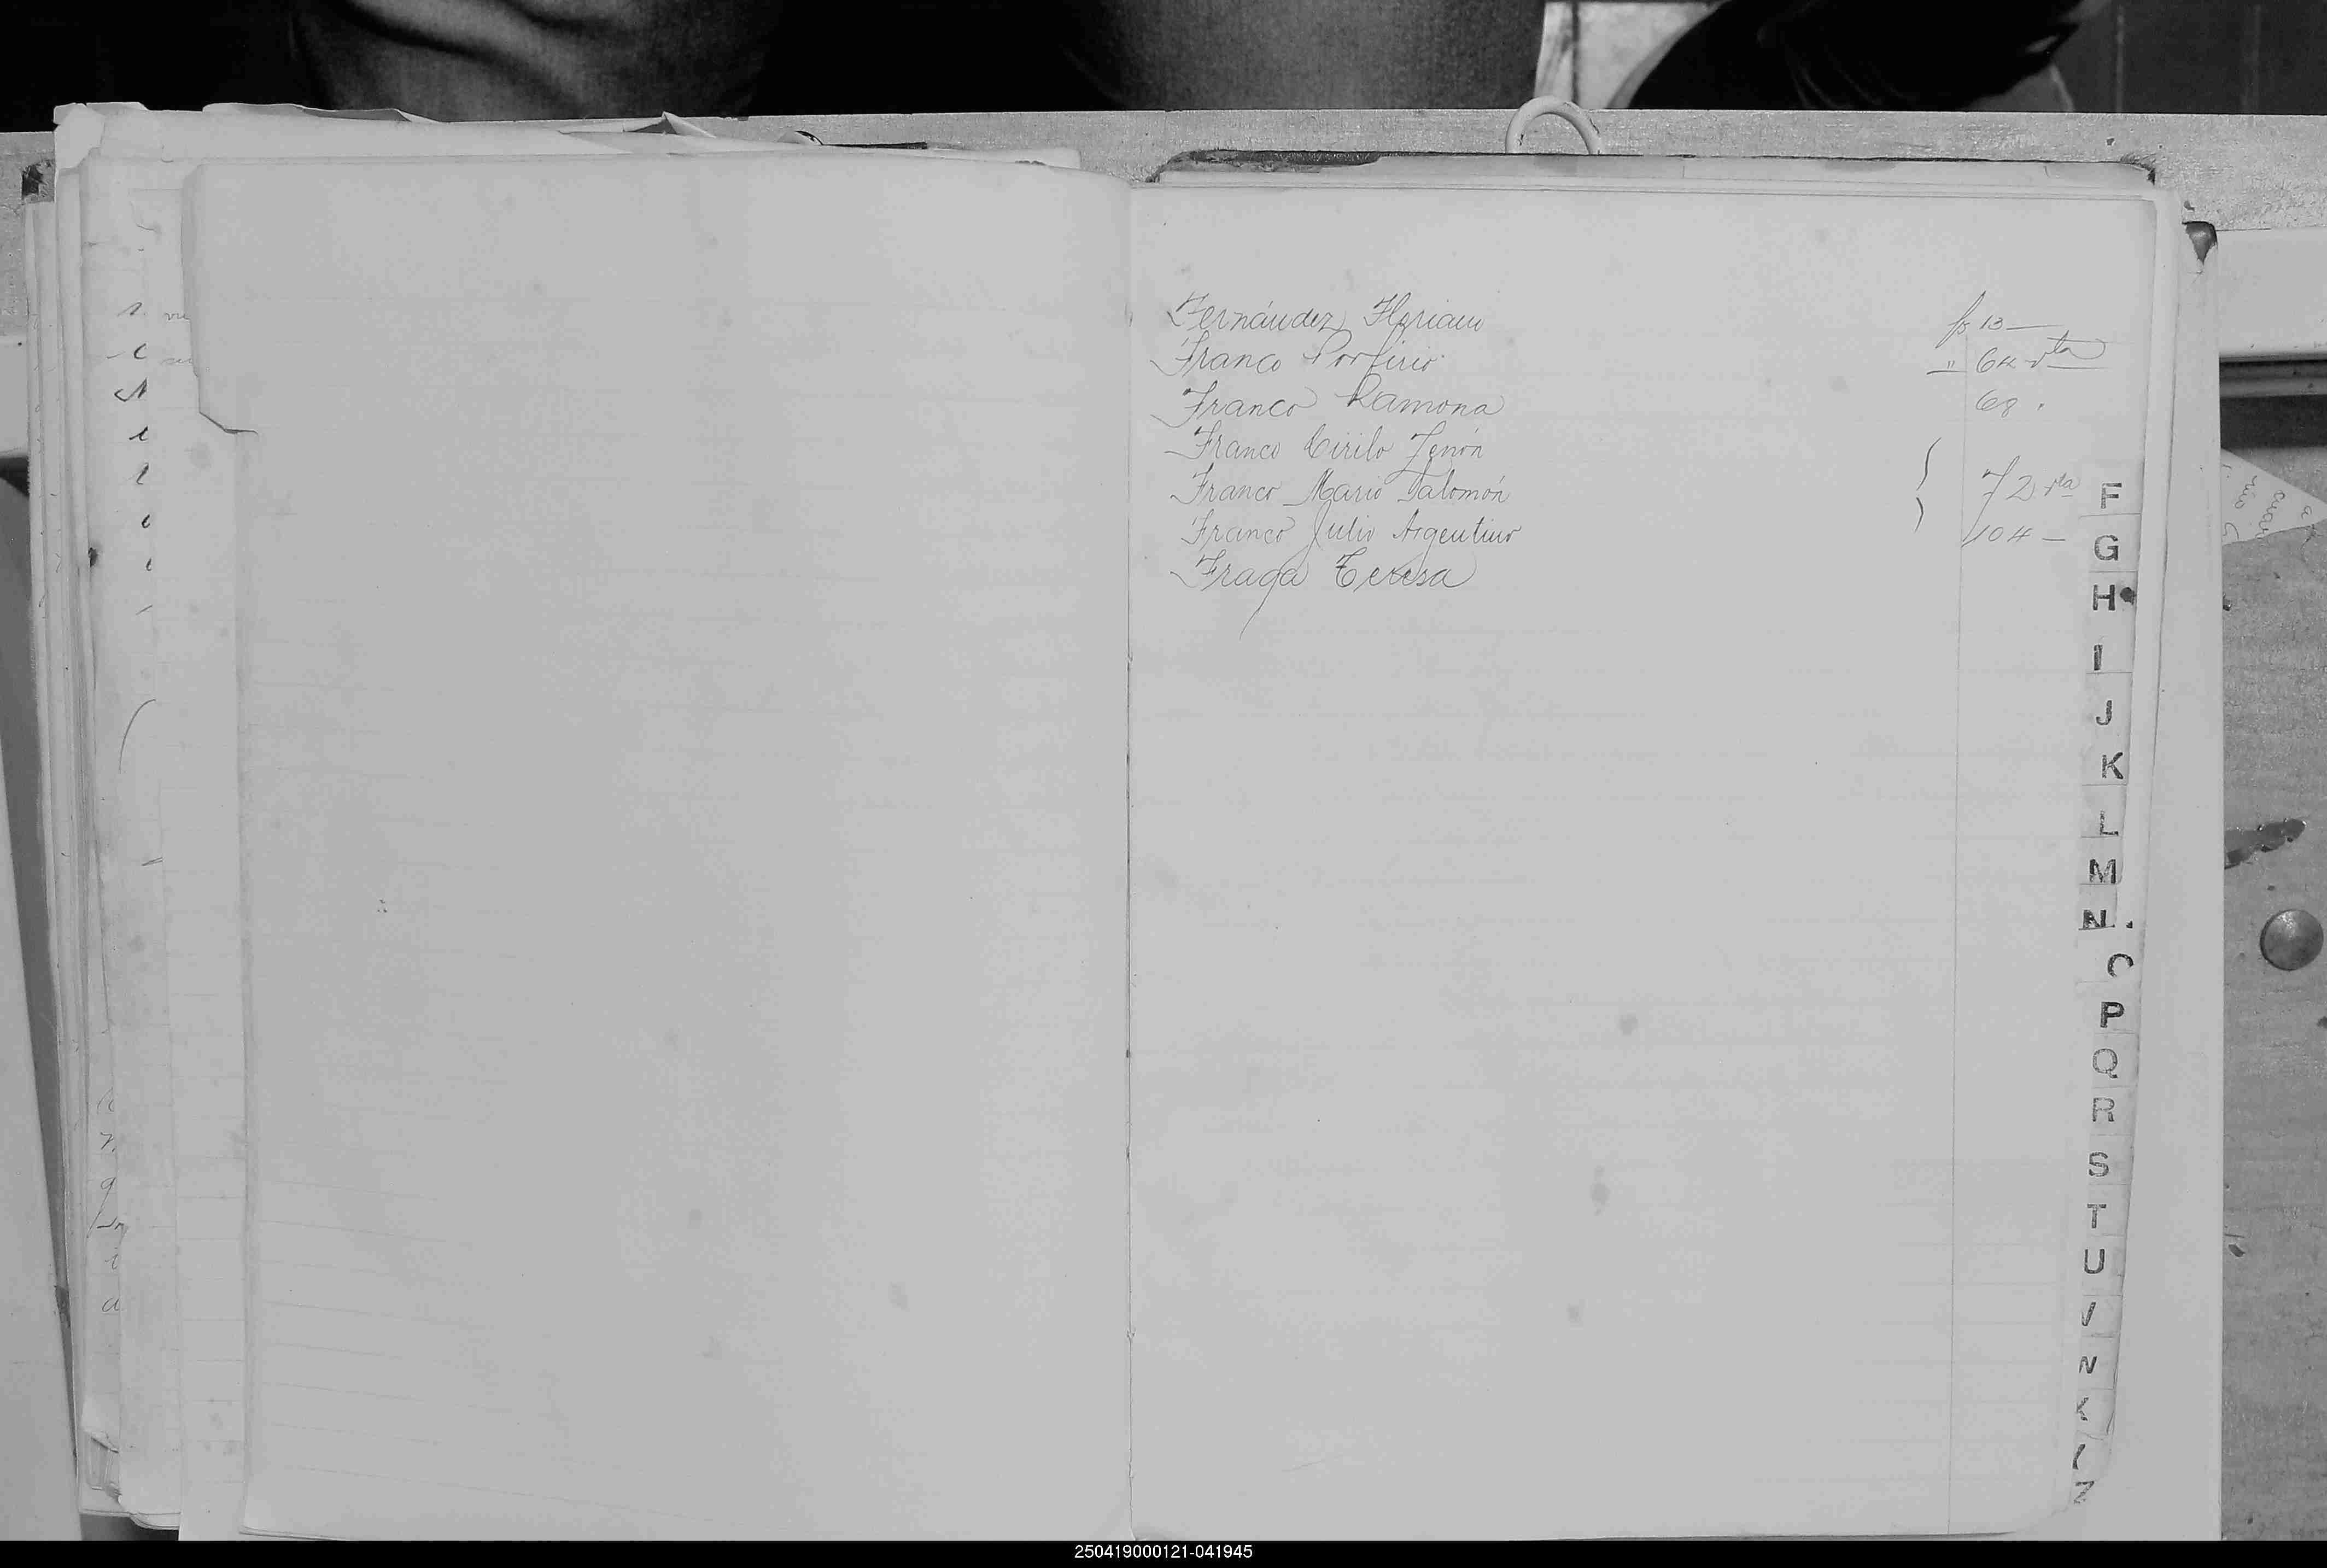 Fernández Floriano fs 13
Franco Porfirio " 64 vta
Franco Ramona 68.
Franco Cirilo Zenón
Franco Mario Salomón 72 vta
Franco Julio Argentino 104
Fraga Teresa
F
G
H
I
J
K
L
M
N
O
P
Q
R
S
T
U
V
X
Z
250419000121-041945